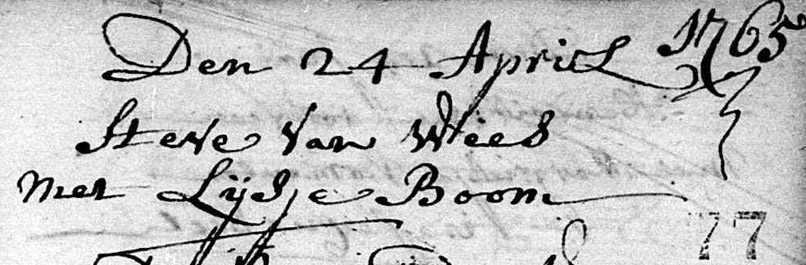 Den 24 April 1765
Steve van Wees
met Lijsje Boom
77